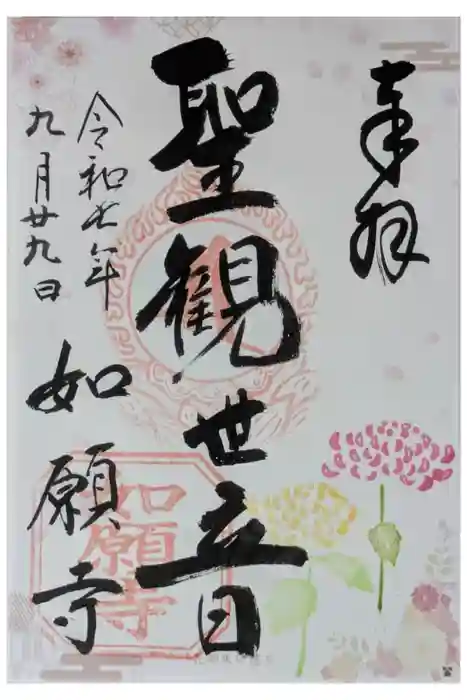 奉拝
聖観世音
令和七年
九月廿九日
如願寺
如願寺